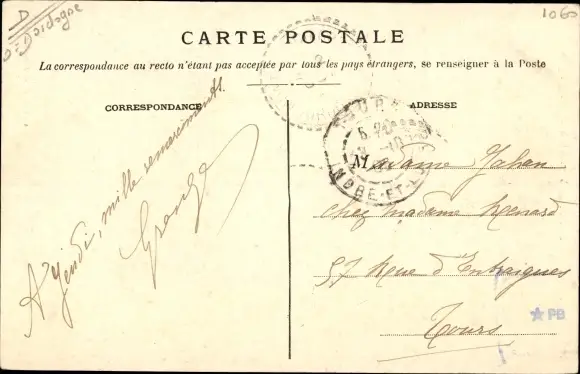 D
Dordogne
1060
CARTE POSTALE
La correspondance au recto n'étant pas acceptée par tous les pays étrangers, se renseigner à la Poste
CORRESPONDANCE
ADRESSE
A Jeudi, mille remerciments.
Madame Jahan
chez Madame Menard
57 Rue d'Entraigues
Tours
INDRE-ET-L
PB